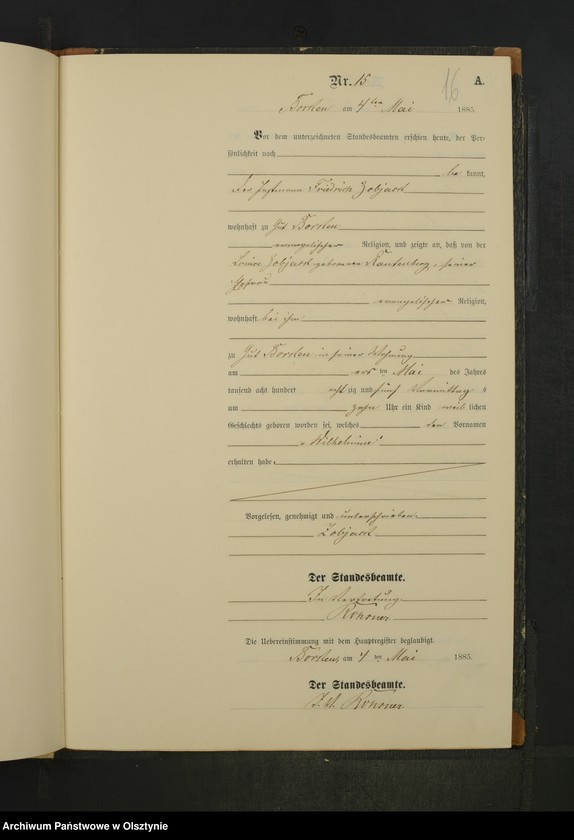 Nr. 15
16
A.
Borken am 4ten Mai 1885.
Vor dem unterzeichneten Standesbeamten erschien heute, der Per-
sönlichkeit nach
be kannt,
der Instmann Friedrich Zobjack
wohnhaft zu Gut Borken
evangelischer Religion, und zeigte an, daß von der
Louise Zobjack geborenen Rautenberg, seiner
Ehefrau
evangelischer Religion,
wohnhaft bei ihm
zu Gut Borken in seiner Wohnung
am ersten Mai des Jahres
tausend acht hundert achtzig und fünf Vormittags
um zehn Uhr ein Kind weiblichen
Geschlechts geboren worden sei, welches den Vornamen
"Wilhelmine"
erhalten habe.
Vorgelesen, genehmigt und unterschrieben
Zobjack
Der Standesbeamte.
In Vertretung
Die Uebereinstimmung mit dem Hauptregister beglaubigt.
Borken, am 4 ten Mai 1885.
Der Standesbeamte.
Archiwum Państwowe w Olsztynie